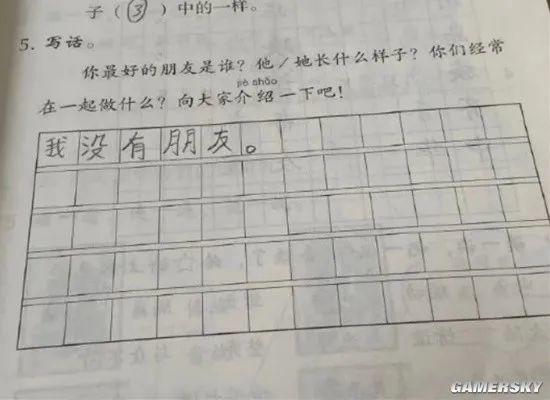 子（③）中的一样。
5. 写话。
你最好的朋友是谁？他／她长什么样子？你们经常
jiè shào
在一起做什么？向大家介绍一下吧！
我没有朋友。
GAMERSKY